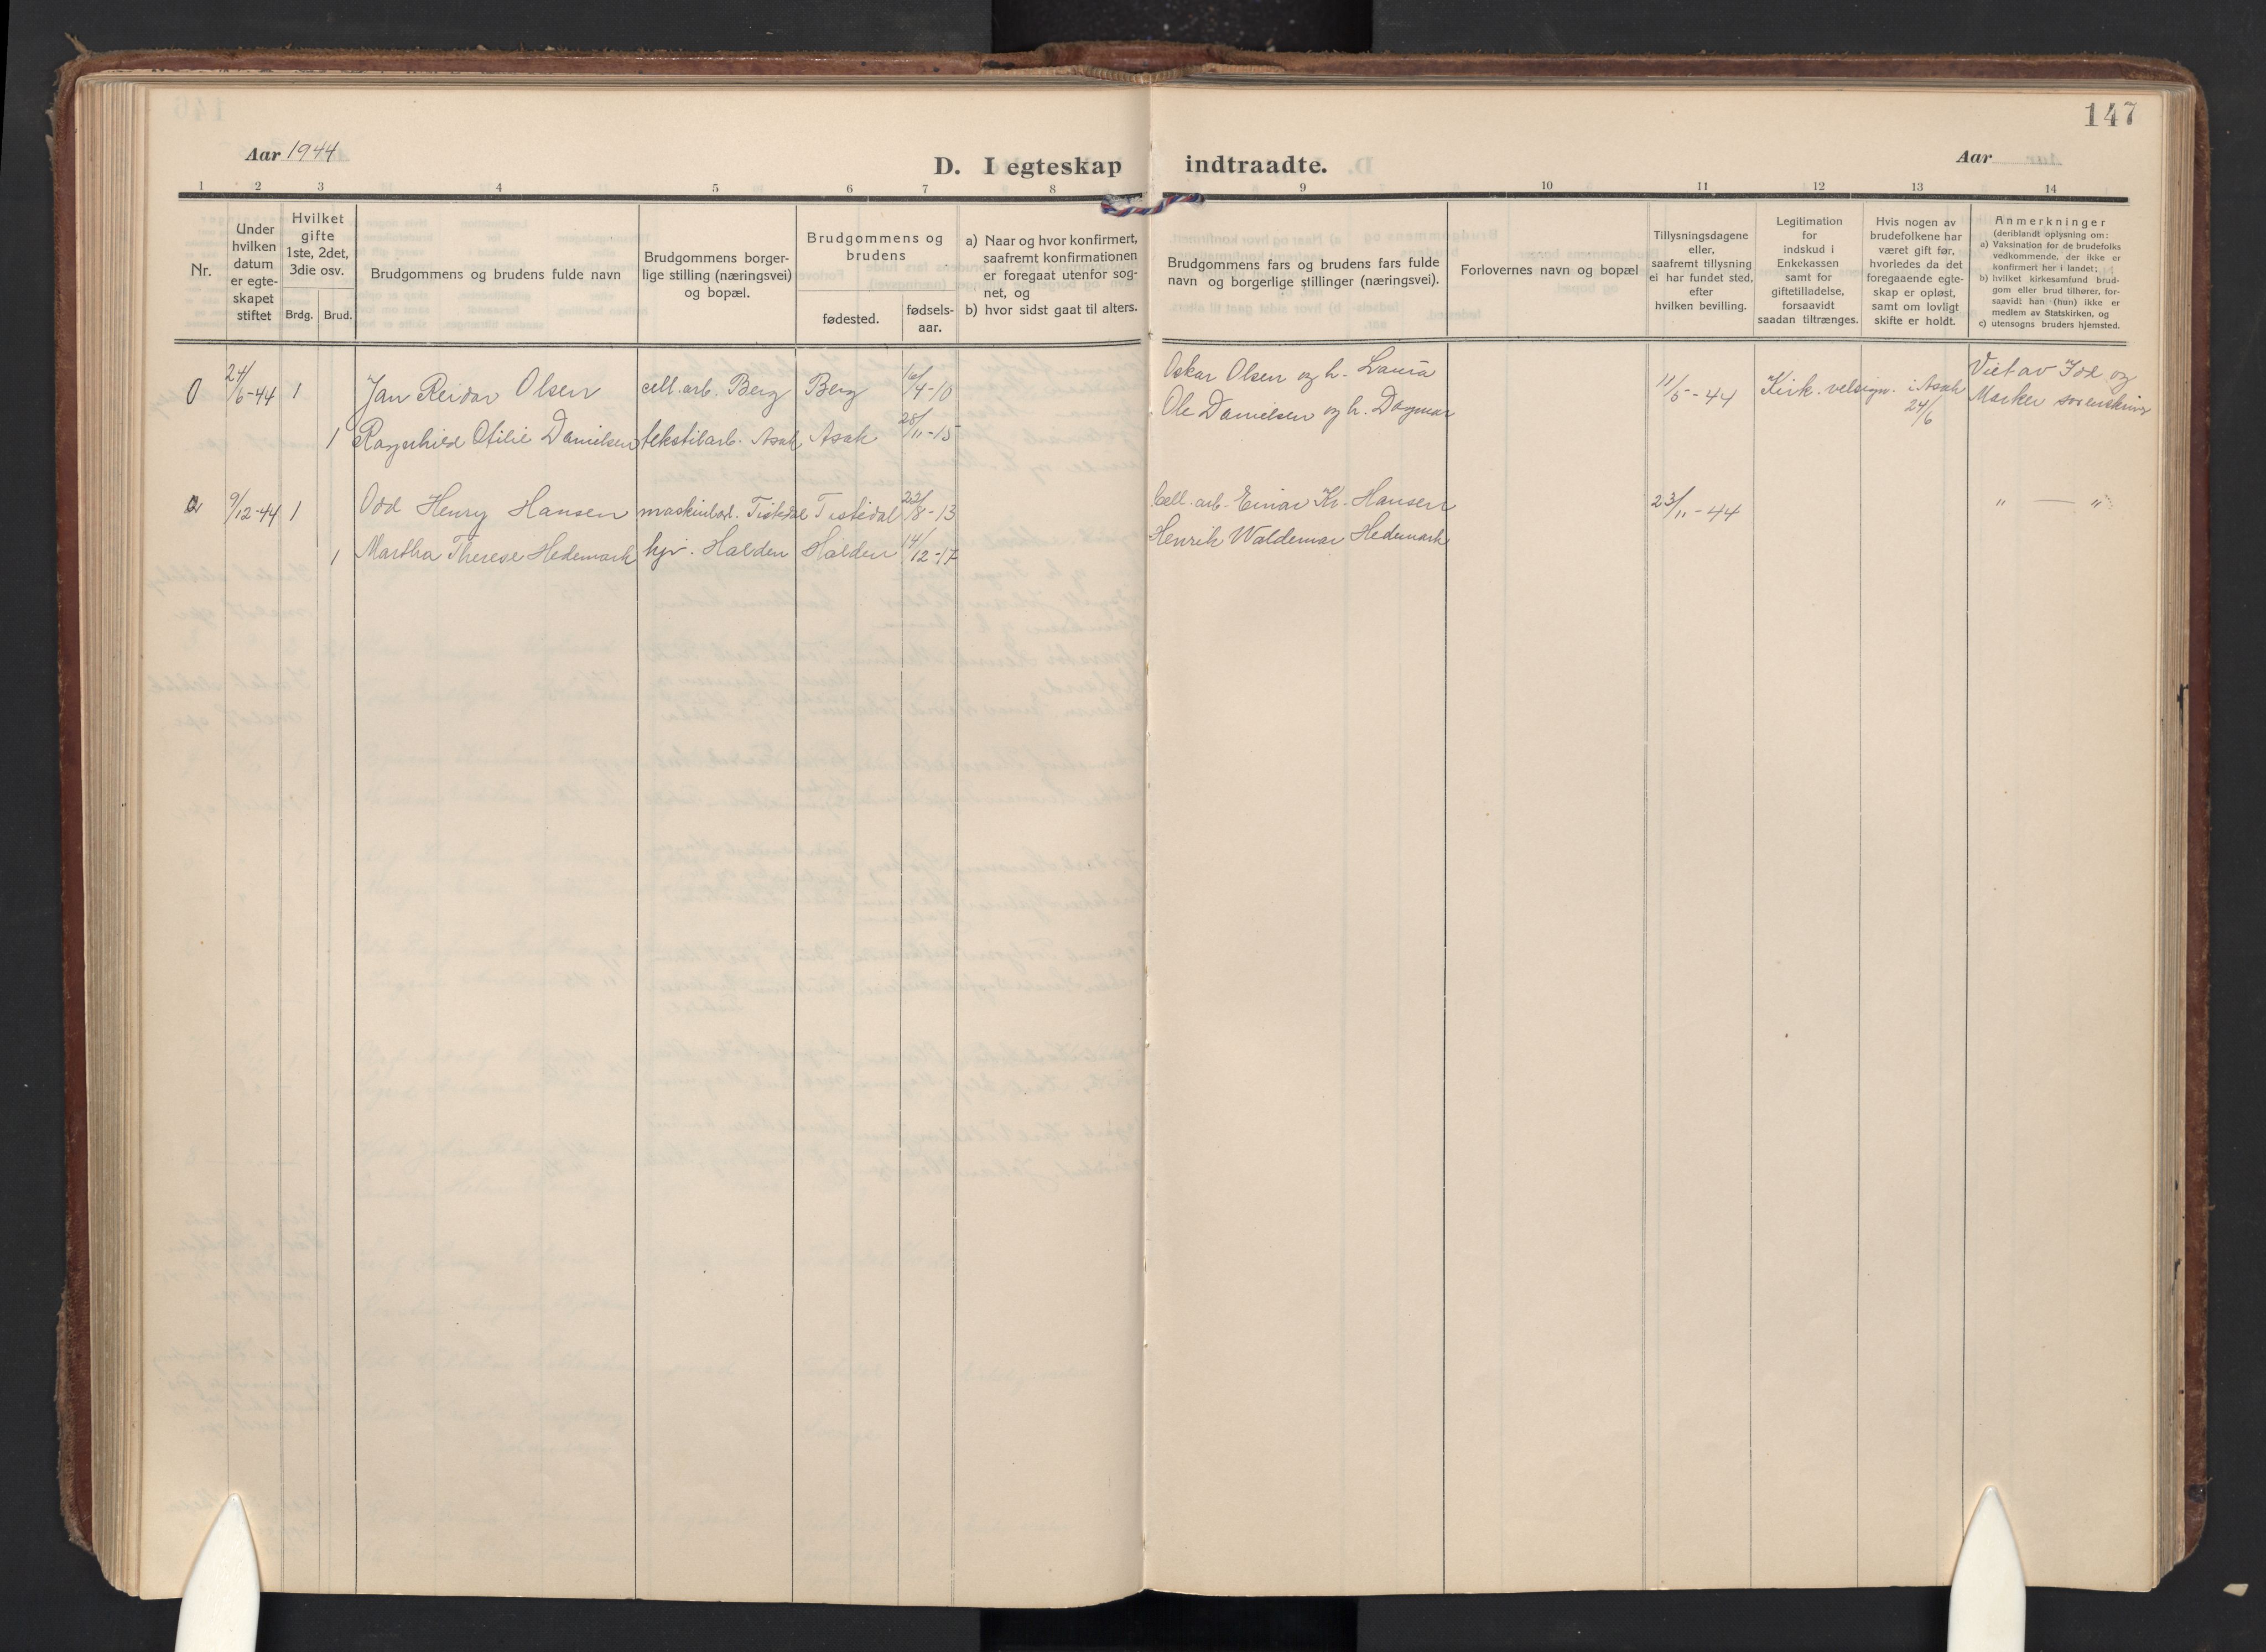 147
Aar 1944
D. I egteskap indtraadte.
Aar
1 2 3 4 5 6 7 8 9 10 11 12 13 14
Nr.
Under
hvilken
datum
er egte-
skapet
stiftet
Hvilket
gifte
1ste, 2det,
3die osv.
Brdg. Brud.
Brudgommens og brudens fulde navn
Brudgommens borger-
lige stilling (næringsvei)
og bopæl.
Brudgommens og
brudens
fødested.
fødsels-
aar.
a) Naar og hvor konfirmert,
saafremt konfirmationen
er foregaat utenfor sog-
net, og
b) hvor sidst gaat til alters.
Brudgommens fars og brudens fars fulde
navn og borgerlige stillinger (næringsvei).
Forlovernes navn og bopæl
Tillysningsdagene
eller,
saafremt tillysning
ei har fundet sted,
efter
hvilken bevilling.
Legitimation
for
indskud i
Enkekassen
samt for
giftetilladelse,
forsaavidt
saadan tiltrænges.
Hvis nogen av
brudefolkene har
været gift før,
hvorledes da det
foregaaende egte-
skap er opløst,
samt om lovligt
skifte er holdt.
Anmerkninger
(deriblandt oplysning om:
a) Vaksination for de brudefolks
vedkommende, der ikke er
konfirmert her i landet;
b) hvilket kirkesamfund brud-
gom eller brud tilhører, for-
saavidt han (hun) ikke er
medlem av Statskirken, og
c) utensogns bruders hjemsted.
0 24/6-44 1 Jan Reidar Olsen cell.arb. Berg Berg 16/4-10 Oskar Olsen og h. Laura 11/5-44 Kirk. velsign. i Asak 24/6 Viet av Idd og
Marker sorenskriver
1 Ragnhild Otilie Danielsen tekstilarb. Asak Asak 28/11-15 Ole Danielsen og h. Dagmar
9/12-44 1 Odd Henry Hansen maskinarb. Tistedal Tistedal 22/8-13 Cell.arb. Einar Kr. Hansen 23/11-44 " — "
1 Martha Therese Hedemark hjv. Halden Halden 14/12-17 Henrik Waldemar Hedemark